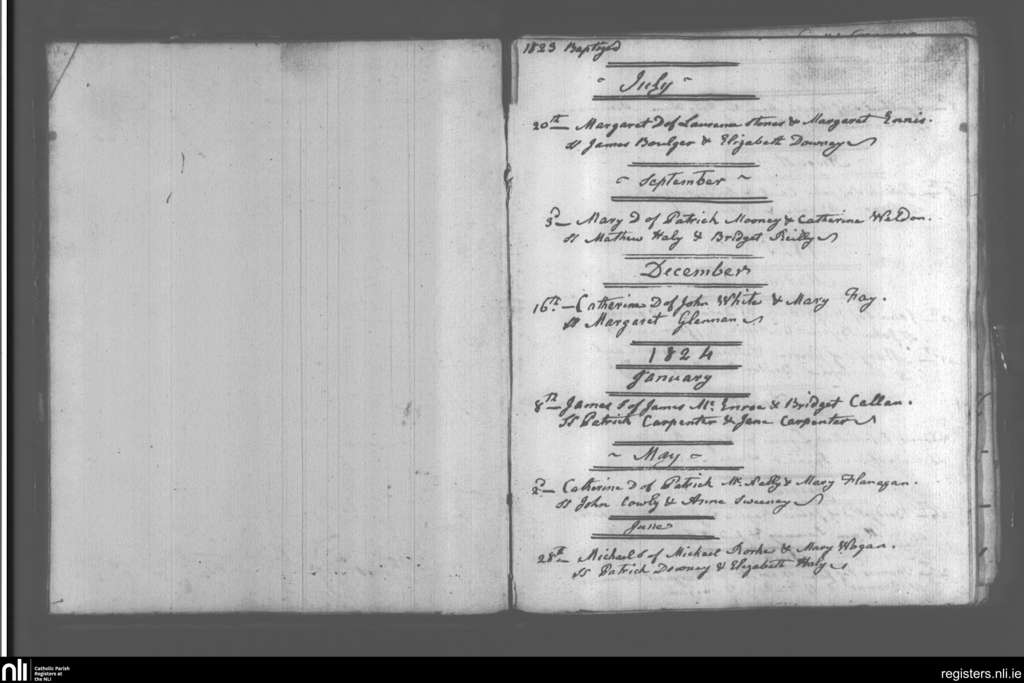 1823 Baptyzd
~ July ~
20th Margaret D of Laurence Stones & Margaret Ennis.
Ss James Boulger & Elizabeth Downey
~ September ~
3d Mary D of Patrick Mooney & Catherine Weldon.
Ss Mathew Haly & Bridget Reilly
December
16th Catherine D of John White & Mary Fay.
Ss Margaret Glennan
1824
January
8th James S of James Mc Enroe & Bridget Callan.
Ss Patrick Carpenter & Jane Carpenter
~ May ~
2d Catherine D of Patrick Mc & Mary Flanagan.
Ss John Cowly & Anne Sweeney
June
28th Michael S of Michael Rorke & Mary Wogan.
Ss Patrick Downey & Elizabeth Haly
nli
Catholic Parish
Registers at
the NLI
registers.nli.ie